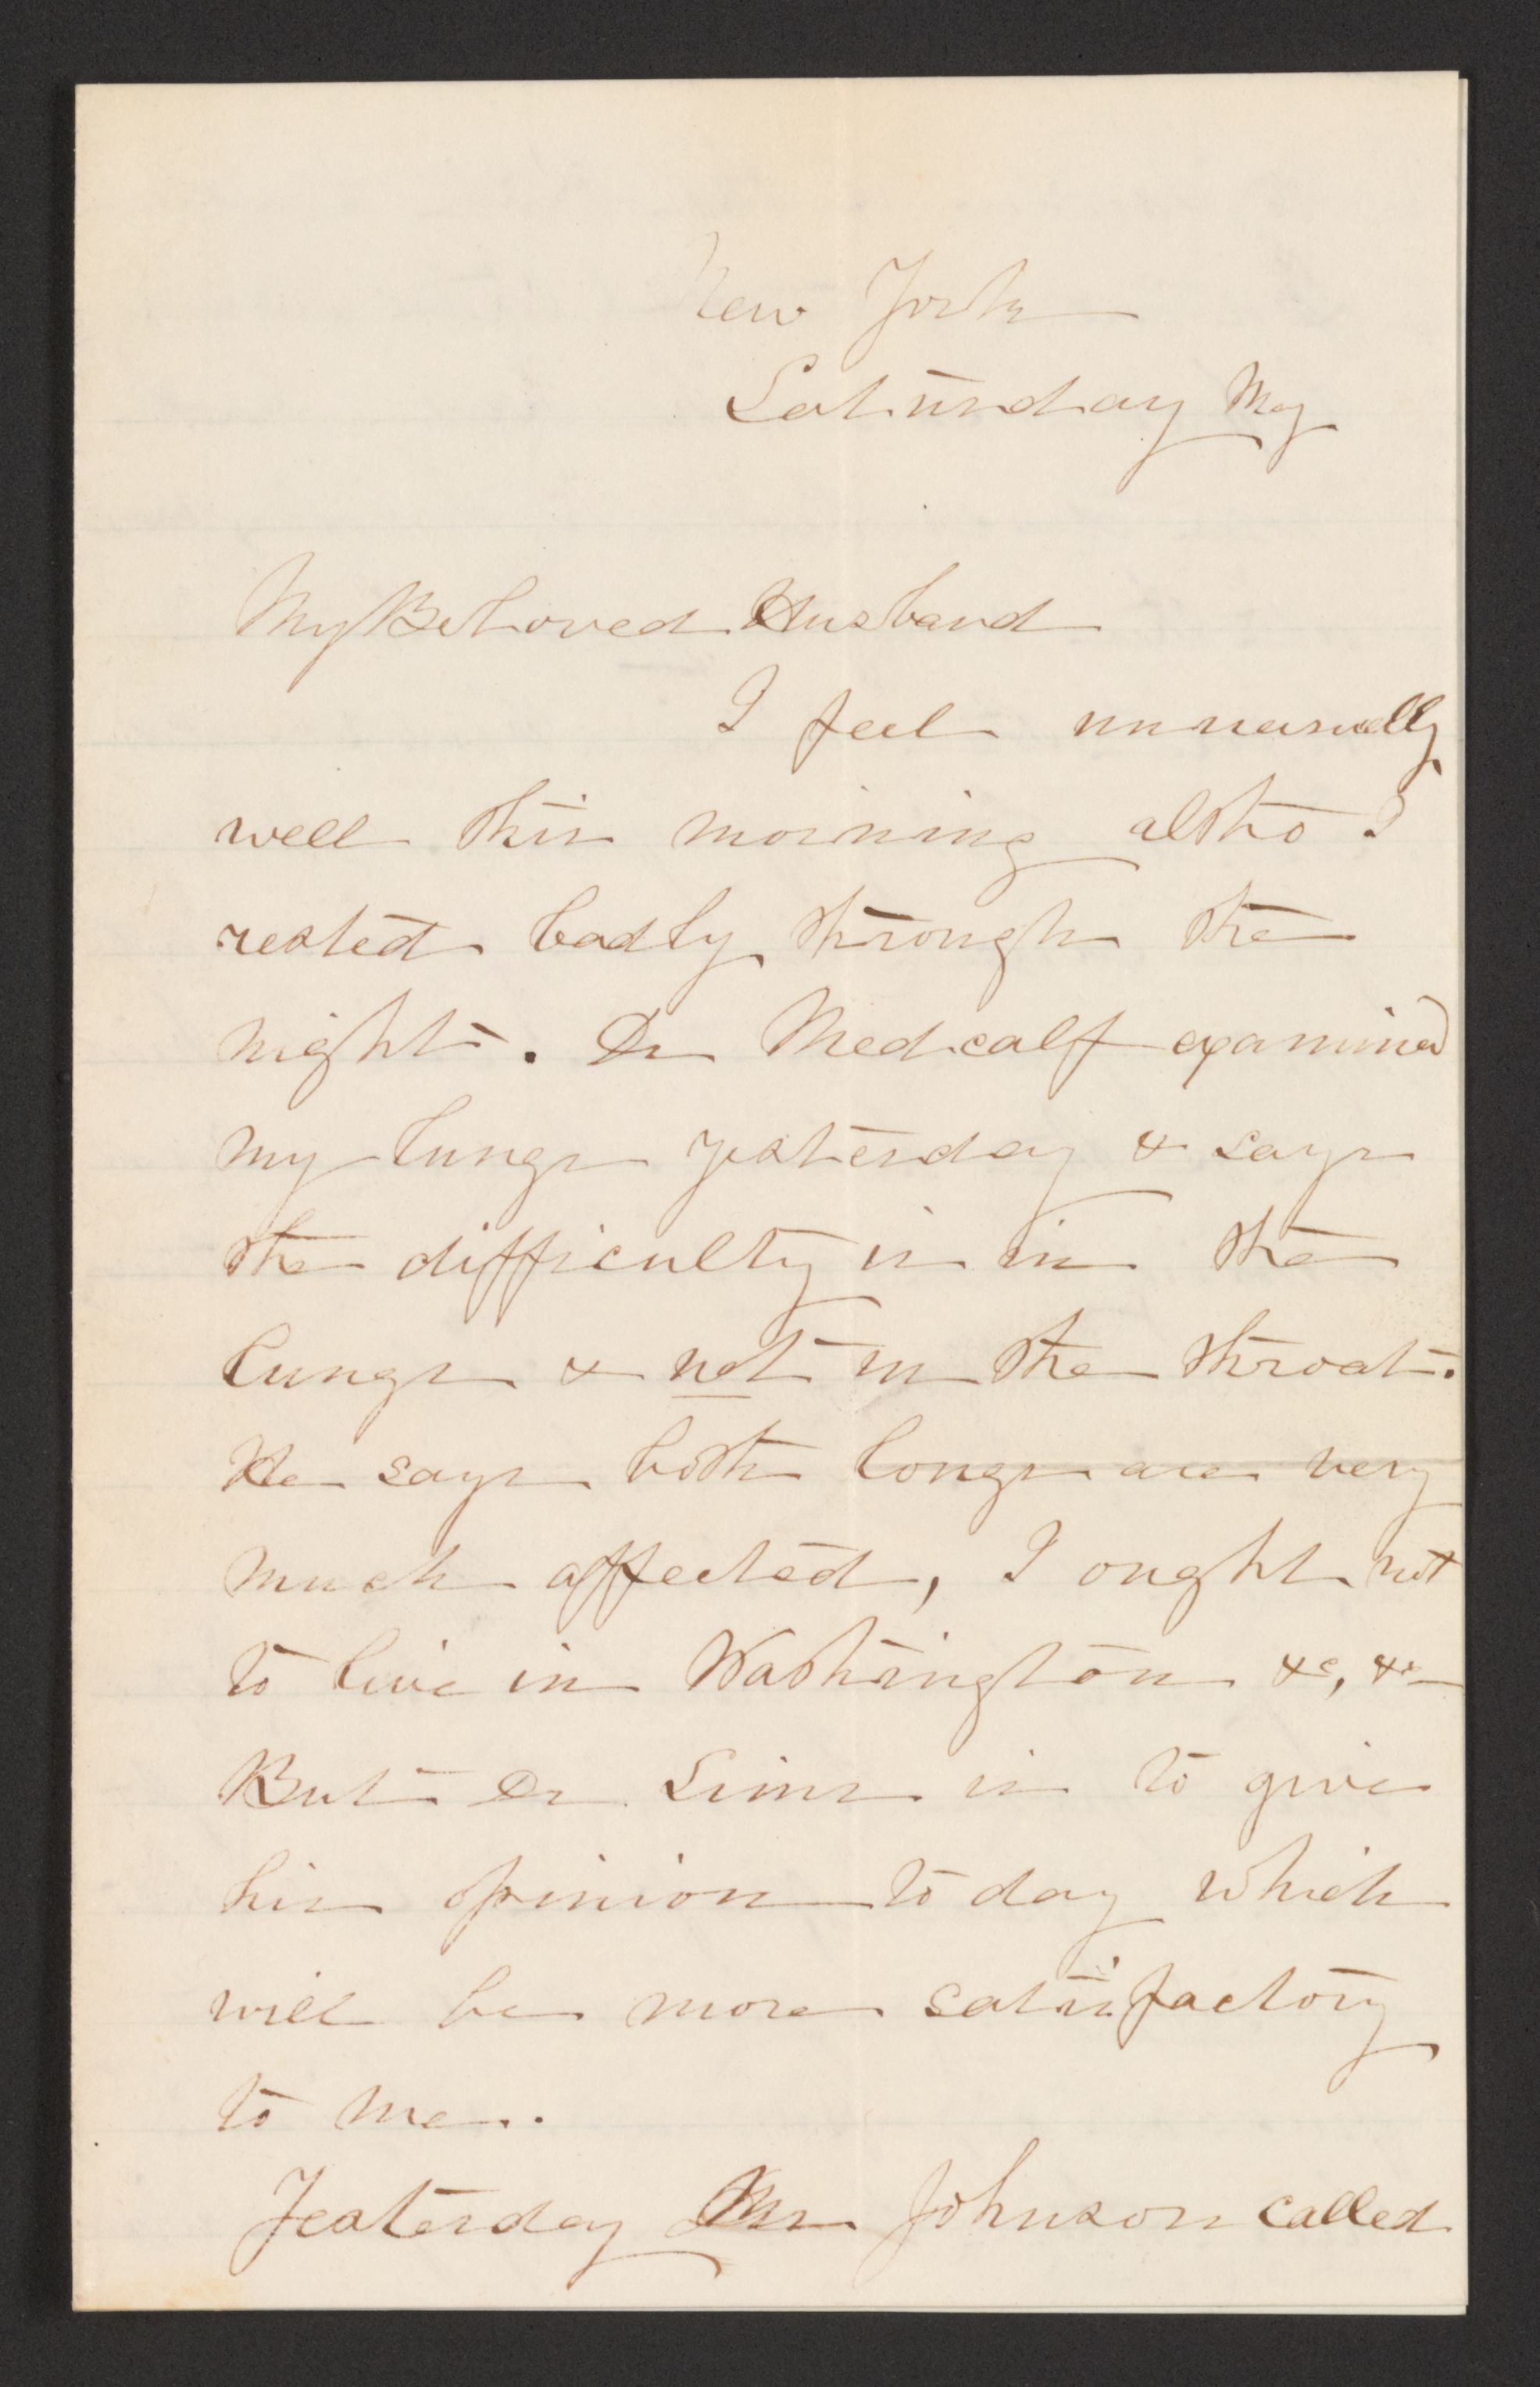 New York
Saturday May
My Beloved Husband
I feel unusually
well this morning altho I
rested badly through the
night. Dr Medcalf examined
my lungs yesterday & says
the difficulty is in the
lungs & not in the throat.
He says both longs are very
much affected, I ought not
to live in Washington &c, &c
But Dr Sims is to give
his opinion to day which
will be more satisfactory
to me.
Yesterday Mr Johnson called